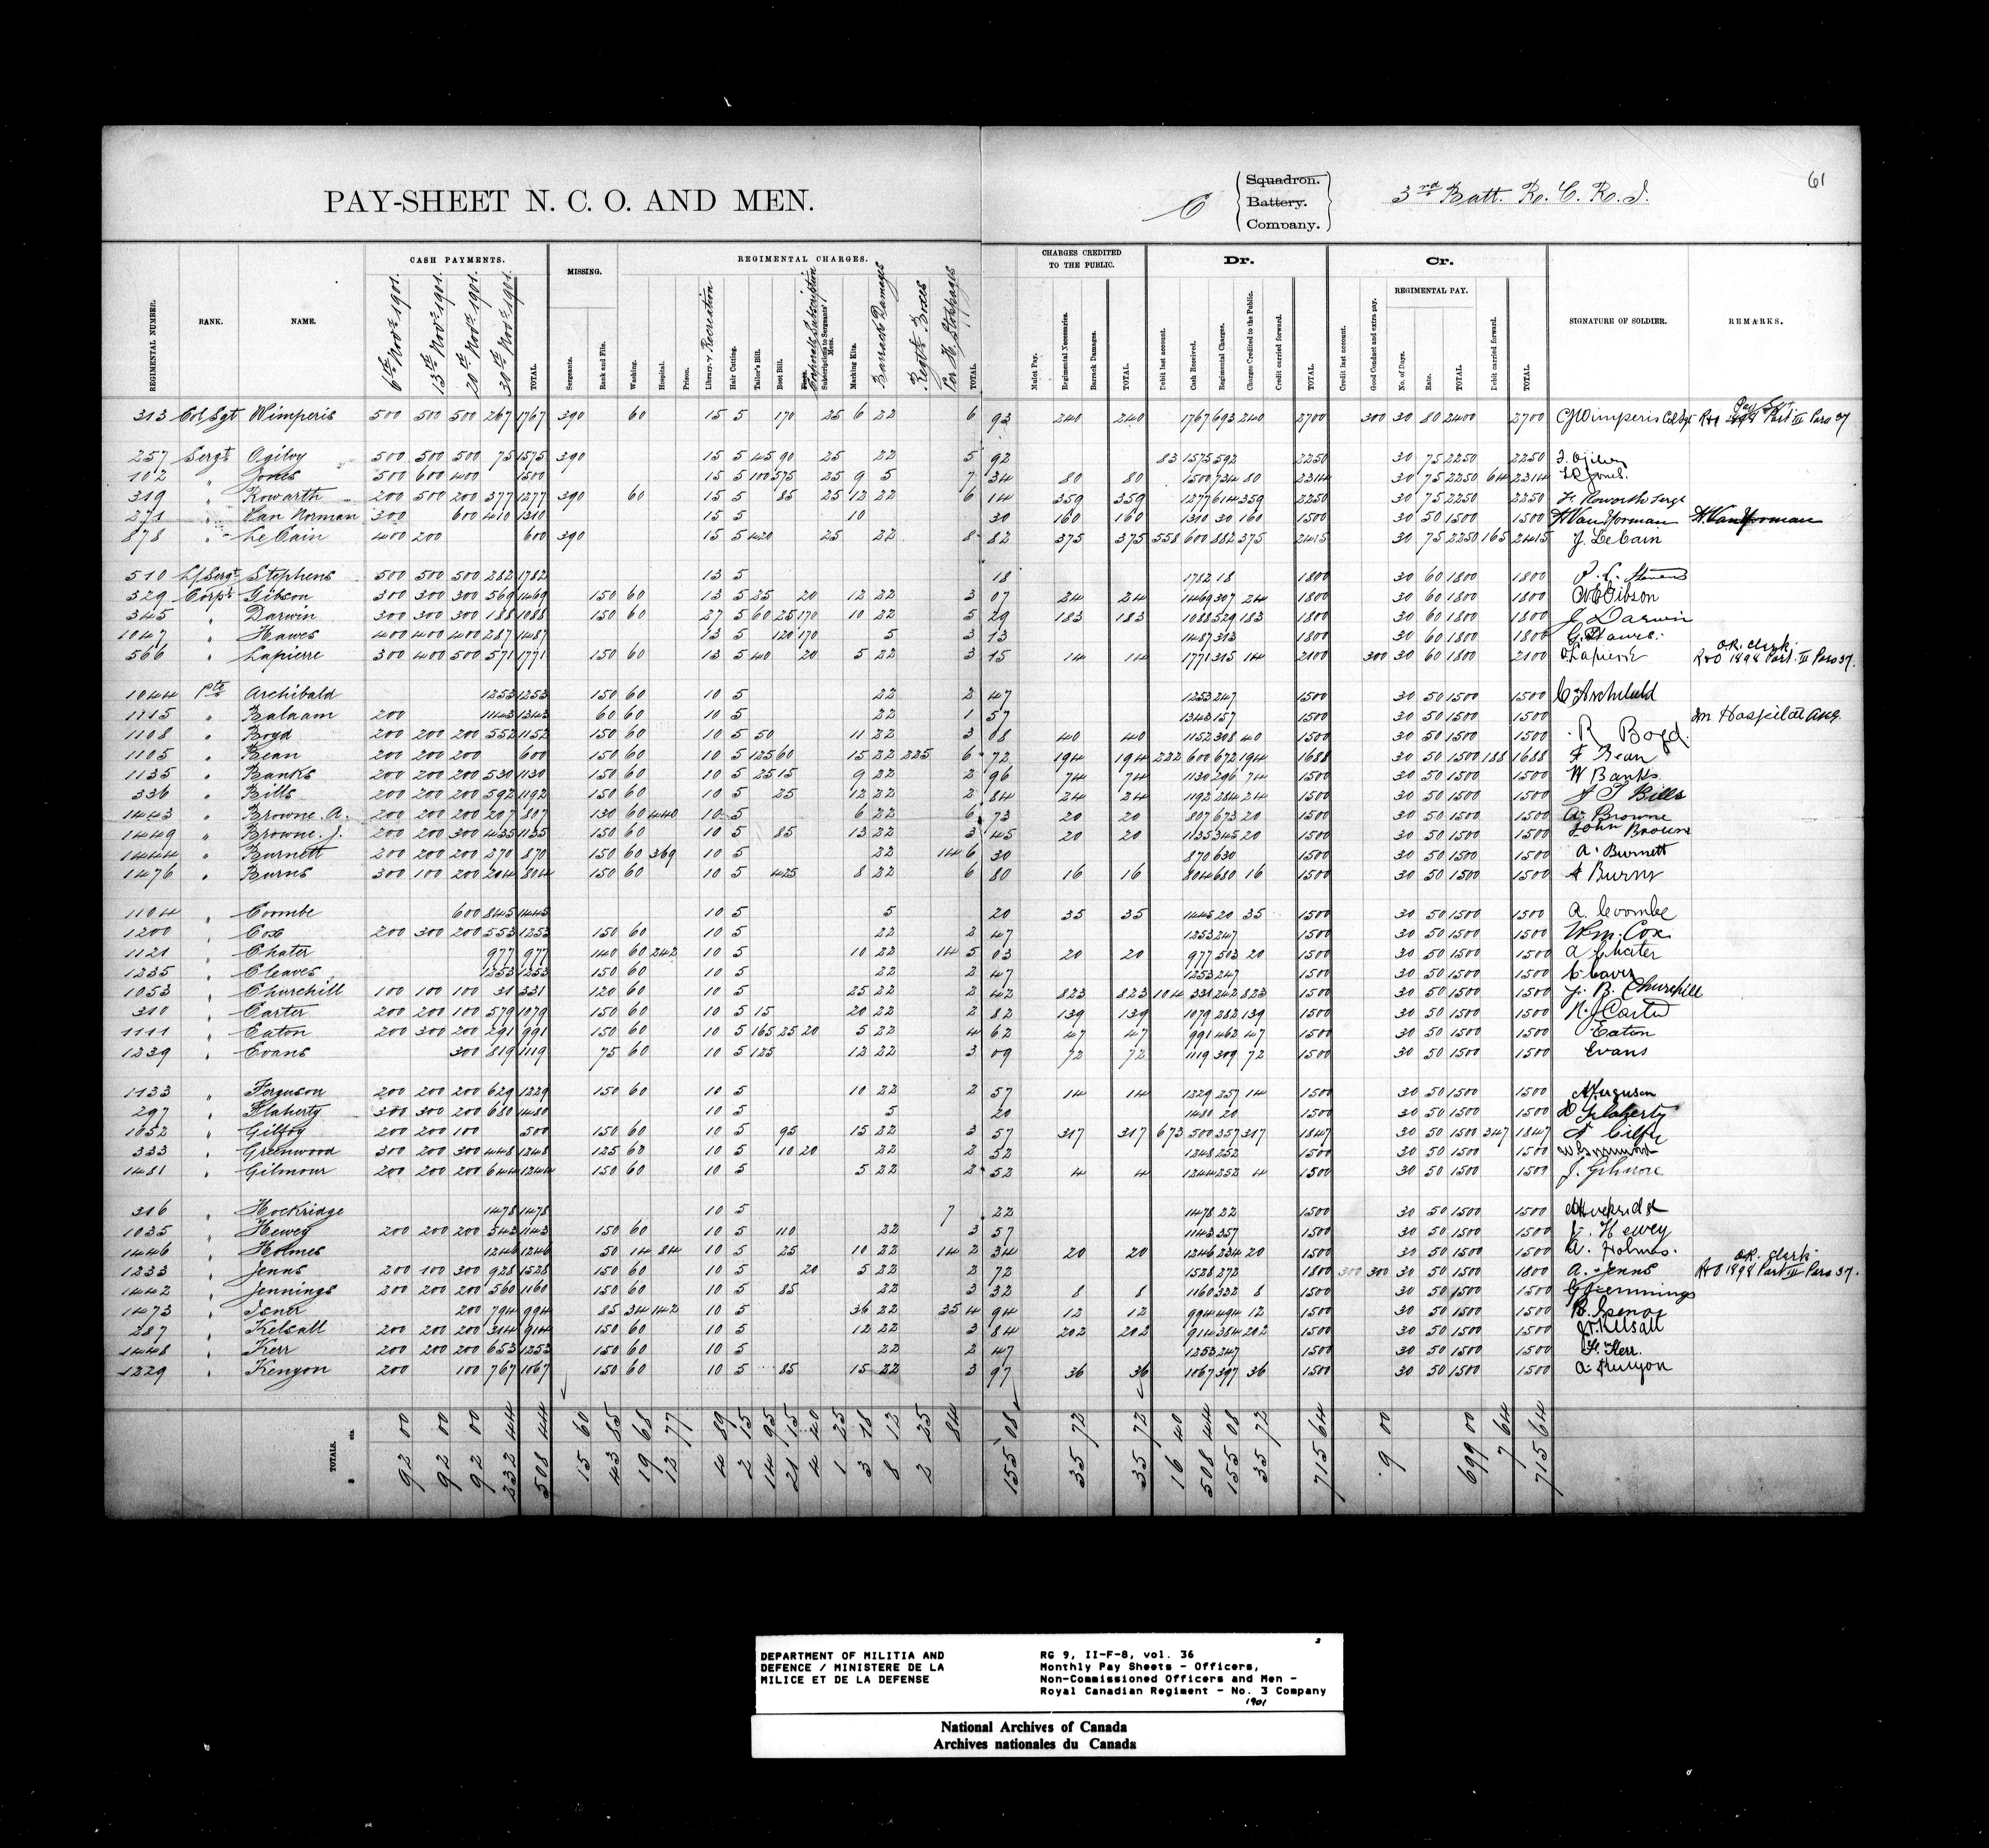 61
PAY-SHEET N. C. O. AND MEN.
C Squadron. Battery. Company. 3rd Batt. R. C. R. I.
CASH PAYMENTS. MISSING. REGIMENTAL CHARGES. CHARGES CREDITED TO THE PUBLIC. Dr. Cr.
REGIMENTAL PAY.
REGIMENTAL NUMBER. RANK. NAME. 6th Novr 1901. 13th Novr 1901. 20th Novr 1901. 30th Novr 1901. TOTAL. Sergeants. Rank and File. Washing. Hospital. Prison. Library & Recreation Hair Cutting. Tailor's Bill. Boot Bill. Corporals Subscription Subscriptions to Sergeants' Mess. Marking Kits. Barrack Damages Regtl. Boxes Per H. Stoppages TOTAL. Mulct Pay. Regimental Necessaries. Barrack Damages. TOTAL. Debit last account. Cash Received. Regimental Charges. Charges Credited to the Public. Credit carried forward. TOTAL. Credit last account. Good Conduct and extra pay. No. of Days. Rate. TOTAL Debit carried forward. TOTAL. SIGNATURE OF SOLDIER. REMARKS.
313 Col Sgt Wimperis 500 500 500 267 1767 390 60 15 5 170 25 6 22 6 93 240 240 1767 693 240 2700 300 30 80 2400 2700 CJ Wimperis Col Sgt Pay Sgt. R&O 1898 Part III Para 37
257 Sergt Ogilvy 500 500 500 75 1575 390 15 5 45 90 25 22 5 92 83 1575 592 2250 30 75 2250 2250 J. Ogilvy
102 " Jones 500 600 400 1500 15 5 100 575 25 9 5 7 34 80 80 1500 734 80 2314 30 75 2250 64 2314 Jones.
319 " Rowarth 200 500 200 377 1277 390 60 15 5 85 25 12 22 6 14 359 359 1277 614 359 2250 30 75 2250 2250 F. Roworth Sergt
271 " Van Norman 300 600 410 1310 15 5 10 30 160 160 1310 30 160 1500 30 50 1500 1500 H Van Norman H. Van Norman
878 " LeCain 400 200 600 390 15 5 420 25 22 8 82 375 375 558 600 882 375 2415 30 75 2250 165 2415 J. LeCain
510 L/Sergt Stephens 500 500 500 282 1782 13 5 18 1782 18 1800 30 60 1800 1800
329 Corpl Gibson 300 300 300 569 1469 150 60 13 5 25 20 12 22 3 07 24 24 1469 307 24 1800 30 60 1800 1800 Gibson
345 " Darwin 300 300 300 188 1088 150 60 27 5 60 25 170 10 22 5 29 183 183 1088 529 183 1800 30 60 1800 1800 J Darwin
1047 " Hawes 400 400 400 287 1487 13 5 120 170 5 3 13 1487 313 1800 30 60 1800 1800 G. Hawes.
566 " Lapierre 300 400 500 571 1771 150 60 13 5 40 20 5 22 3 15 14 14 1771 315 14 2100 300 30 60 1800 2100 O. Lapierre O.R. Clerk. R&O 1898 Part III Para 37.
1044 Pte Archibald 1253 1253 150 60 10 5 22 2 47 1253 247 1500 30 50 1500 1500 C Archibald
1115 " Balaam 200 1143 1343 60 60 10 5 22 1 57 1343 157 1500 30 50 1500 1500 In Hospital
1108 " Boyd 200 200 200 552 1152 150 60 10 5 50 11 22 3 08 40 40 1152 308 40 1500 30 50 1500 1500 R Boyd.
1105 " Bean 200 200 200 600 150 60 10 5 125 60 15 22 225 6 72 194 194 222 600 672 194 1688 30 50 1500 188 1688 F Bean
1135 " Banks 200 200 200 530 1130 150 60 10 5 25 15 9 22 2 96 74 74 1130 296 74 1500 30 50 1500 1500 W Banks
336 " Bills 200 200 200 592 1192 150 60 10 5 25 12 22 2 84 24 24 1192 284 24 1500 30 50 1500 1500 J T Bills
1443 " Browne. A. 200 200 200 207 807 130 60 440 10 5 6 22 6 73 20 20 807 673 20 1500 30 50 1500 1500 A Browne
1449 " Browne. J. 200 200 300 435 1135 150 60 10 5 85 13 22 3 45 20 20 1135 345 20 1500 30 50 1500 1500 John Brown
1444 " Burnett 200 200 200 270 870 150 60 369 10 5 22 14 6 30 870 630 1500 30 50 1500 1500 A. Burnett
1476 " Burns 300 100 200 204 804 150 60 10 5 425 8 22 6 80 16 16 804 680 16 1500 30 50 1500 1500 A Burns
1104 " Coombe 600 845 1445 10 5 5 20 35 35 1445 20 35 1500 30 50 1500 1500 A. Coombe
1200 " Cox 200 300 200 553 1253 150 60 10 5 22 2 47 1253 247 1500 30 50 1500 1500 Wm. Cox
1121 " Chater 977 977 140 60 242 10 5 10 22 14 5 03 20 20 977 503 20 1500 30 50 1500 1500 A Chater
1235 " Cleaves 1253 1253 150 60 10 5 22 2 47 1253 247 1500 30 50 1500 1500
1053 " Churchill 100 100 100 31 331 120 60 10 5 25 22 2 42 823 823 104 331 242 823 1500 30 50 1500 1500 J. B. Churchill
310 " Carter 200 200 100 579 1079 150 60 10 5 15 20 22 2 82 139 139 1079 282 139 1500 30 50 1500 1500 N. J Carter
1111 " Eaton 200 300 200 291 991 150 60 10 5 165 25 20 5 22 4 62 47 47 991 462 47 1500 30 50 1500 1500 Eaton
1239 " Evans 300 819 1119 75 60 10 5 125 12 22 3 09 72 72 1119 309 72 1500 30 50 1500 1500 Evans
1133 " Ferguson 200 200 200 629 1229 150 60 10 5 10 22 2 57 14 14 1229 257 14 1500 30 50 1500 1500 A Ferguson
297 " Flaherty 300 300 200 680 1480 10 5 5 20 1480 20 1500 30 50 1500 1500 D Flaherty
1052 " Gilfoy 200 200 100 500 150 60 10 5 95 15 22 3 57 317 317 673 500 357 317 1847 30 50 1500 347 1847
333 " Greenwood 300 200 300 448 1248 125 60 10 5 10 20 22 2 52 1248 252 1500 30 50 1500 1500 W Greenwood
1481 " Gilmour 200 200 200 644 1244 150 60 10 5 5 22 2 52 4 4 1244 252 4 1500 30 50 1500 1500 J. Gilmore
316 " Hockridge 1478 1478 10 5 7 22 1478 22 1500 30 50 1500 1500 Hockridge
1035 " Hewey 200 200 200 543 1143 150 60 10 5 110 22 3 57 1143 357 1500 30 50 1500 1500 J. Hewey
1446 " Holmes 1246 1246 50 14 84 10 5 25 10 22 14 2 34 20 20 1246 234 20 1500 30 50 1500 1500 A. Holmes.
1233 " Jenns 200 100 300 928 1528 150 60 10 5 20 5 22 2 72 1528 272 1800 300 300 30 50 1500 1800 A. Jenns O.R. Clerk. R&O 1898 Part III Para 37.
1442 " Jennings 200 200 200 560 1160 150 60 10 5 85 22 3 32 8 8 1160 332 8 1500 30 50 1500 1500 G Jennings
1473 " Isenor 200 794 994 85 34 142 10 5 36 22 35 4 94 12 12 994 494 12 1500 30 50 1500 1500 B. Isenor
287 " Kelsall 200 200 200 314 914 150 60 10 5 12 22 3 84 202 202 914 384 202 1500 30 50 1500 1500 Kelsall
1448 " Kerr 200 200 200 653 1253 150 60 10 5 22 2 47 1253 247 1500 30 50 1500 1500 H. Kerr.
1229 " Kenyon 200 100 767 1067 150 60 10 5 85 15 22 3 97 36 36 1067 397 36 1500 30 50 1500 1500 A. Kenyon
TOTALS. $ cts. 92 00 92 00 92 00 232 44 508 44 15 60 43 85 19 68 12 77 4 89 2 15 14 95 21 15 4 40 1 25 3 18 8 12 2 25 84 155 08 35 72 35 72 16 40 508 44 155 08 35 72 715 64 9 00 699 00 7 64 715 64
DEPARTMENT OF MILITIA AND
DEFENCE / MINISTERE DE LA
MILICE ET DE LA DEFENSE
RG 9, II-F-8, vol. 36
Monthly Pay Sheets - Officers,
Non-Commissioned Officers and Men -
Royal Canadian Regiment - No. 3 Company
1901
National Archives of Canada
Archives nationales du Canada